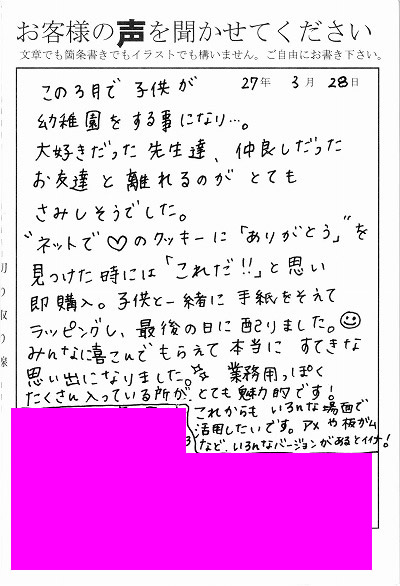 お客様の声を聞かせてください
文章でも箇条書きでもイラストでも構いません。ご自由にお書き下さい。
27年 3月 28日
この3月で子供が
幼稚園をする事になり…。
大好きだった先生達、仲良しだった
お友達と離れるのがとても
さみしそうでした。
"ネットで♡のクッキーに「ありがとう」"を
見つけた時には「これだ!!」と思い
即購入。子供と一緒に手紙をそえて
ラッピングし、最後の日に配りました。☺
みんなに喜こんでもらえて本当にすてきな
思い出になりました。☆ 業務用っぽく
たくさん入っている所が、とても魅力的です!
これからもいろんな場面で
活用したいです。アメや板ガム
など、いろんなバージョンがあるとイイナ!
切り取り線